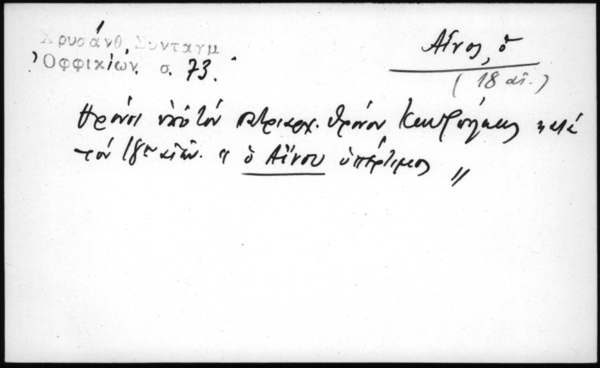 Χρυσάνθ. Συνταγμ
Ὀφφικίων. σ. 73.
Αἶνος, ὁ
(18 αἰ.)
Θρόνοι ὑπὸ τὸν πατριαρχ. θρόνον Κων/πόλεως κατὰ
τὸν 18ον αἰῶν. "ὁ Αἴνου ὑπέρτιμος"